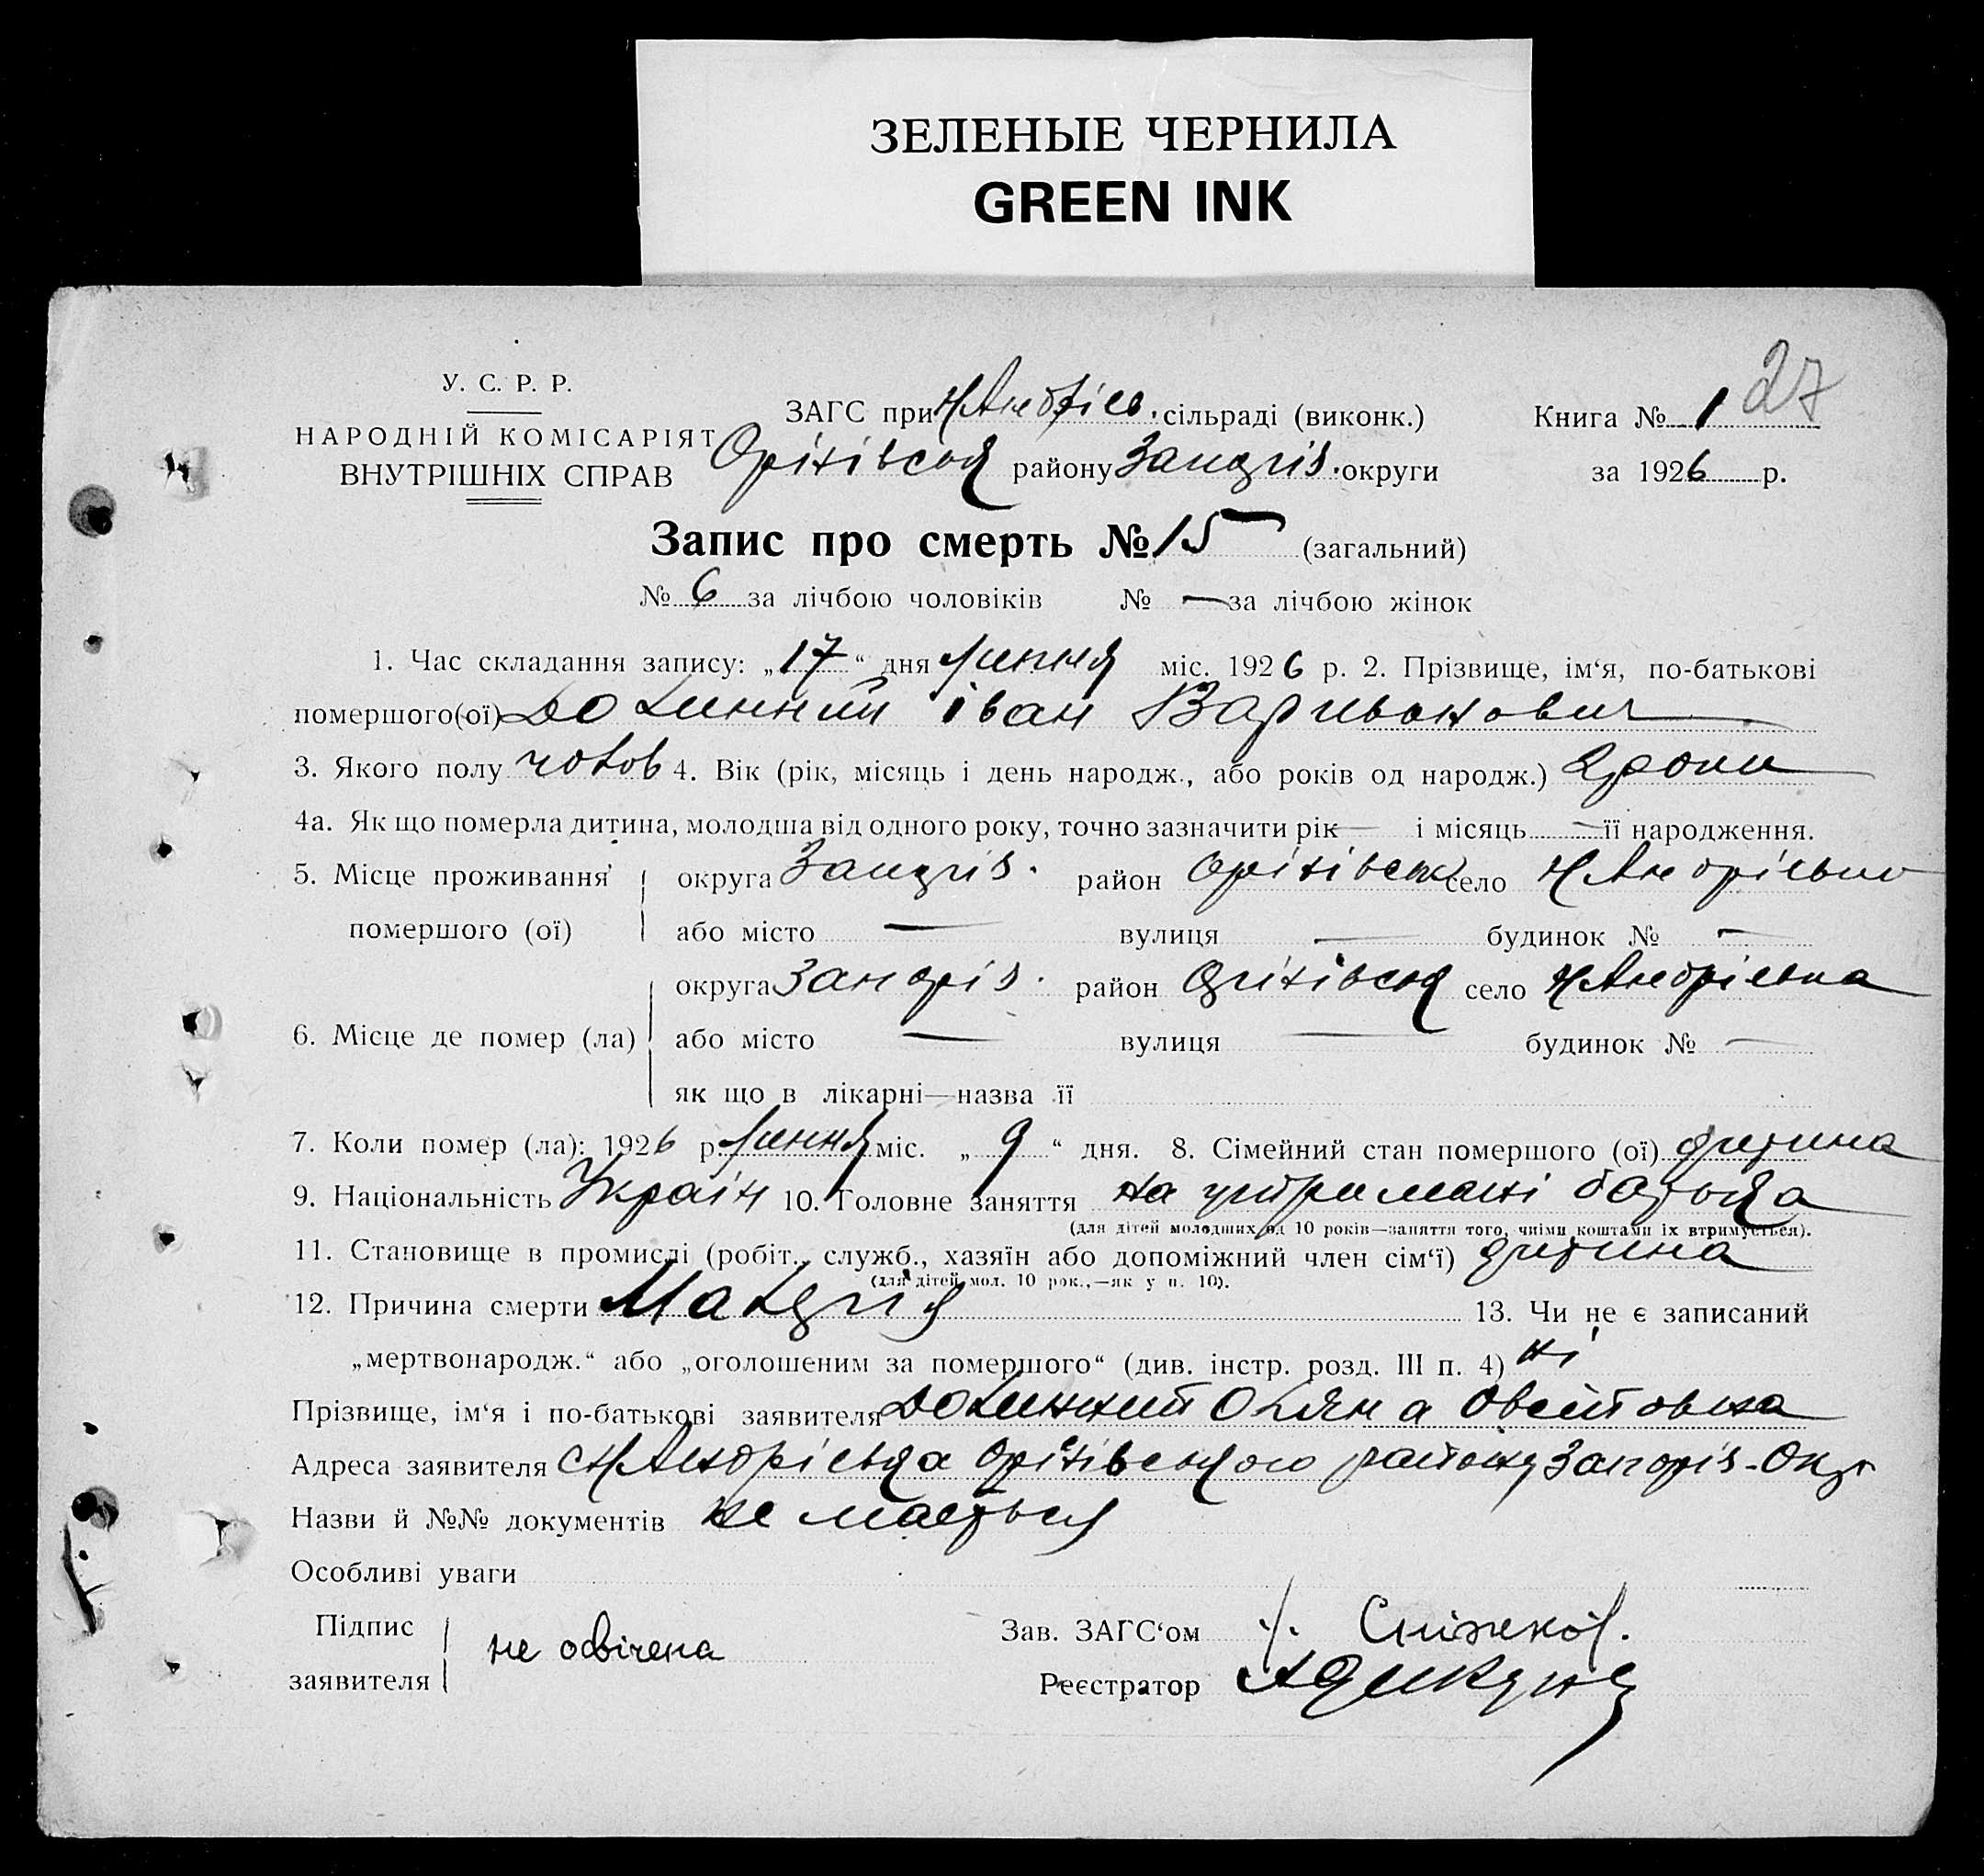 ЗЕЛЕНЫЕ ЧЕРНИЛА
GREEN INK
27
У. С. Р. Р.
НАРОДНІЙ КОМІСАРІЯТ
ВНУТРІШНІХ СПРАВ
ЗАГС при Н Андрієв. сільраді (виконк.)
Оріхівськ району Запоріз. округи
Книга № 1
за 1926 р.
Запис про смерть № 15 (загальний)
№ 6 за лічбою чоловіків № — за лічбою жінок
1. Час складання запису: „17“ дня липня міс. 1926 р. 2. Прізвище, ім‘я, по-батькові
помершого(ої) Іван
3. Якого полу чолов 4. Вік (рік, місяць і день народж., або років од народж.) 2 роки
4а. Як що померла дитина, молодша від одного року, точно зазначити рік — і місяць — її народження.
5. Місце проживання помершого (ої) округа Запоріз. район Оріхівськ село Н Андрієвка
або місто — вулиця — будинок № —
6. Місце де помер (ла) округа Запоріз. район Оріхівськ село Н Андрієвка
або місто — вулиця — будинок № —
як що в лікарні—назва її
7. Коли помер (ла): 1926 р. липня міс. „9“ дня. 8. Сімейний стан помершого (ої) дитина
9. Національність Україн 10. Головне заняття на утримані батька
(для дітей молодших од 10 років—заняття того, чиїми коштами їх втримується).
11. Становище в промислі (робіт., служб., хазяїн або допоміжний член сім‘ї) дитина
(для дітей мол. 10 рок.,—як у п. 10).
12. Причина смерти 13. Чи не є записаний
„мертвонародж.“ або „оголошеним за помершого“ (див. інстр. розд. III п. 4) ні
Прізвище, ім‘я і по-батькові заявителя
Адреса заявителя с Н Андрієвка Оріхівського району Запоріз. Окр
Назви й №№ документів не мається
Особливі уваги
Підпис заявителя не освічена
Зав. ЗАГС‘ом
Реєстратор